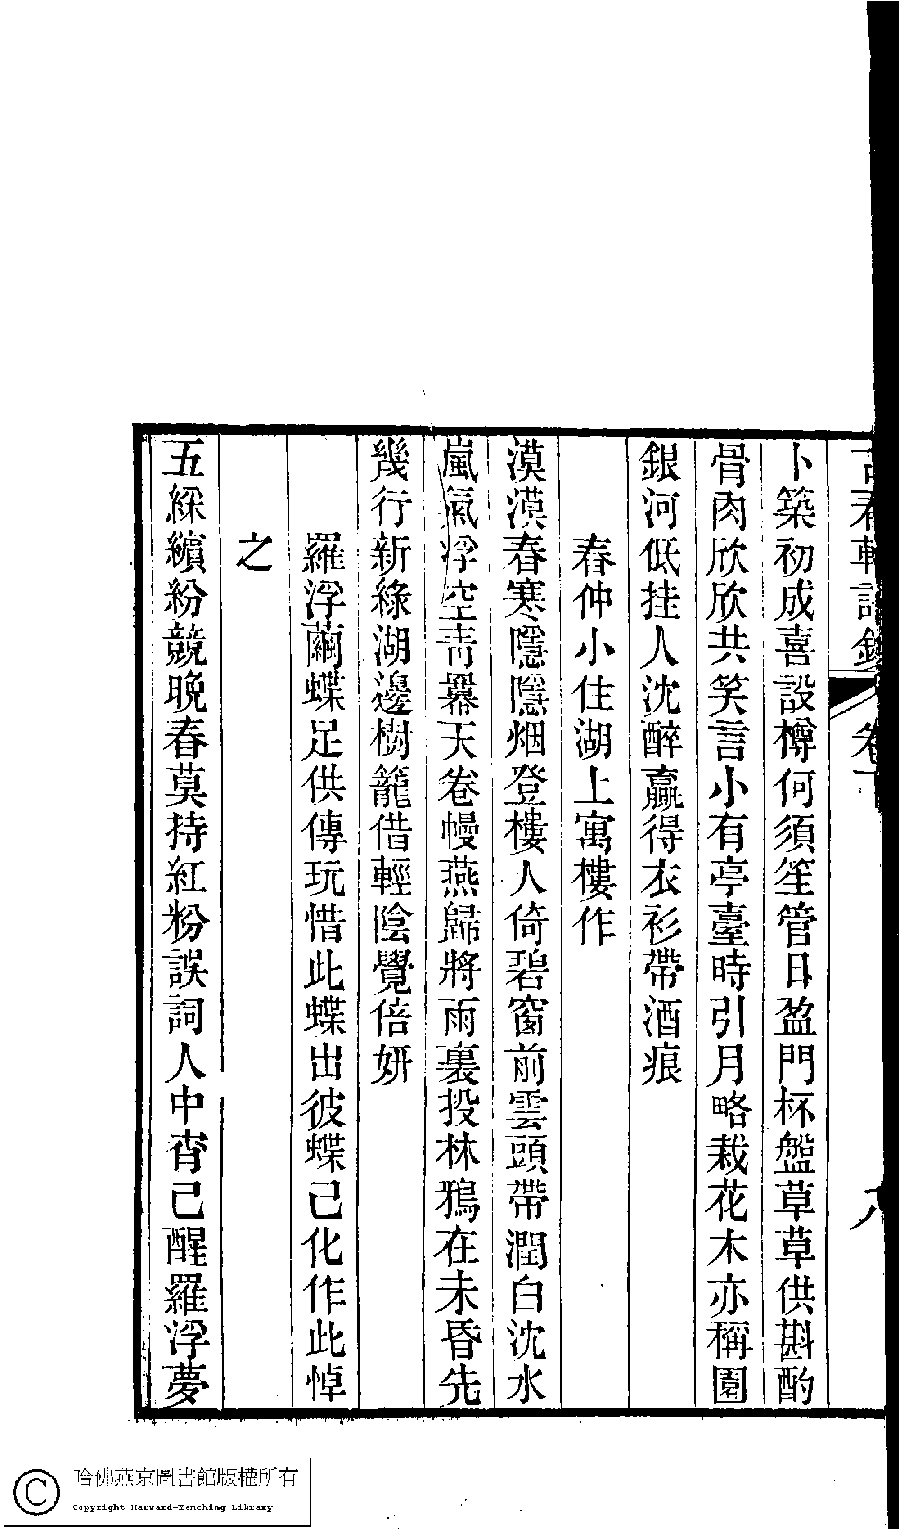 卜築初成喜設樽何須笙管日盈門杯盤草草供斟酌
骨肉欣欣共笑言小有亭臺時引月略栽花木亦稱園
銀河低挂人沈醉贏得衣衫帶酒痕
春仲小住湖上寓樓作
漠漠春寒隱隱烟登樓人倚碧窗前雲頭帶潤白沈水
嵐氣浮空靑羃天卷幔燕歸將雨裏投林鴉在未昏先
幾行新綠湖邊樹籠借輕陰覺倍妍
羅浮繭蝶足供傳玩惜此蝶出彼蝶己化作此悼
之
五綵繽紛競晚春莫持紅粉誤詞人中宵己醒羅浮夢
哈佛燕京圖書館版權所有
Copyright Harvard-Yenching Library